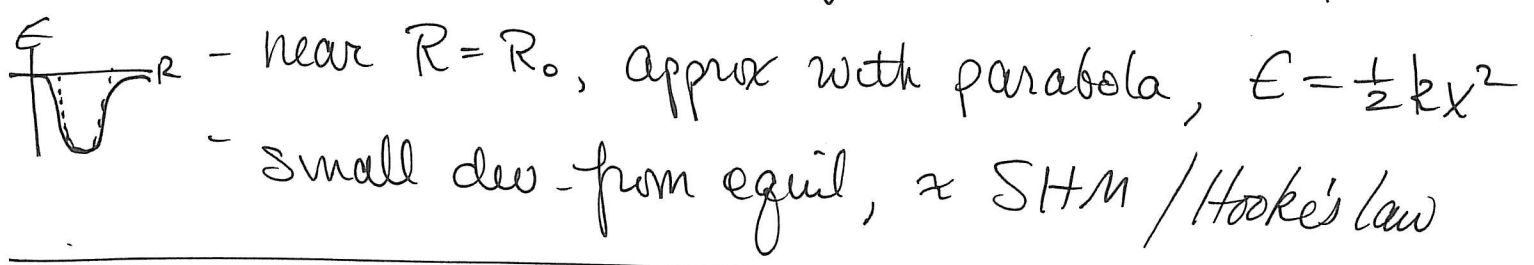 E
R
- near R = R₀, approx with parabola, E = ½kx²
- small dev from equil, ≈ SHM / Hooke's law